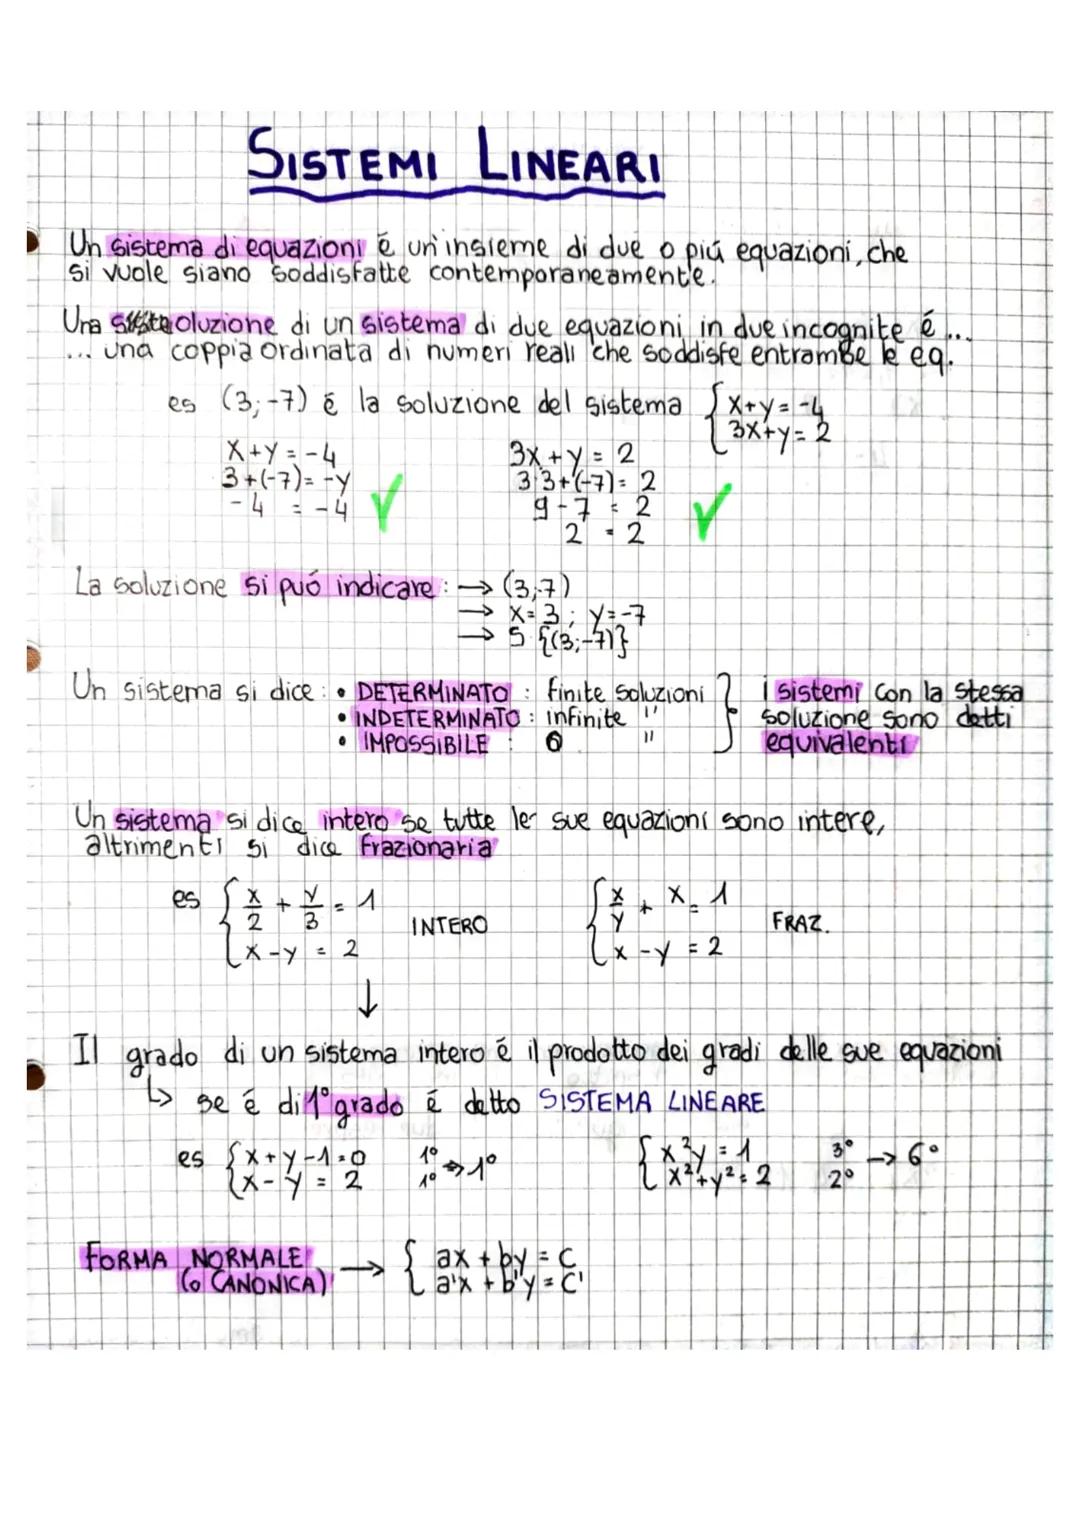 SISTEMI LINEARI
Un sistema di equazioni é un'insieme di due o piú equazioni, che
si vuole siano soddisfatte contemporaneamente.
Una soluzione di un sistema di due equazioni in due incognite é ...
... una coppia ordinata di numeri reali che soddisfe entrambe le eq.
es (3;-7) é la soluzione del sistema { x+y = -4
3x+y = 2
x+y = -4 3x + y = 2
3+(-7) = -y 3·3+(-7) = 2
-4 = -4 ✓ 9-7 = 2 ✓
2 = 2
La soluzione si puó indicare: → (3;7)
→ x = 3 ; y = -7
→ S {(3;-7)}
Un sistema si dice: • DETERMINATO : finite soluzioni } i sistemi con la stessa
• INDETERMINATO : infinite " soluzione sono detti
• IMPOSSIBILE : 0 " equivalenti
Un sistema si dice intero se tutte le sue equazioni sono intere,
altrimenti si dice frazionaria
es { x/2 + y/3 = 1 INTERO { x/y + x = 1 FRAZ.
x - y = 2 x - y = 2
↓
Il grado di un sistema intero é il prodotto dei gradi delle sue equazioni
↳ se é di 1° grado é detto SISTEMA LINEARE
es { x+y-1=0 1° → 1° { x²y = 1 3° → 6°
x-y = 2 1° x²+y² = 2 2°
FORMA NORMALE → { ax + by = c
(o CANONICA) a'x + b'y = c'